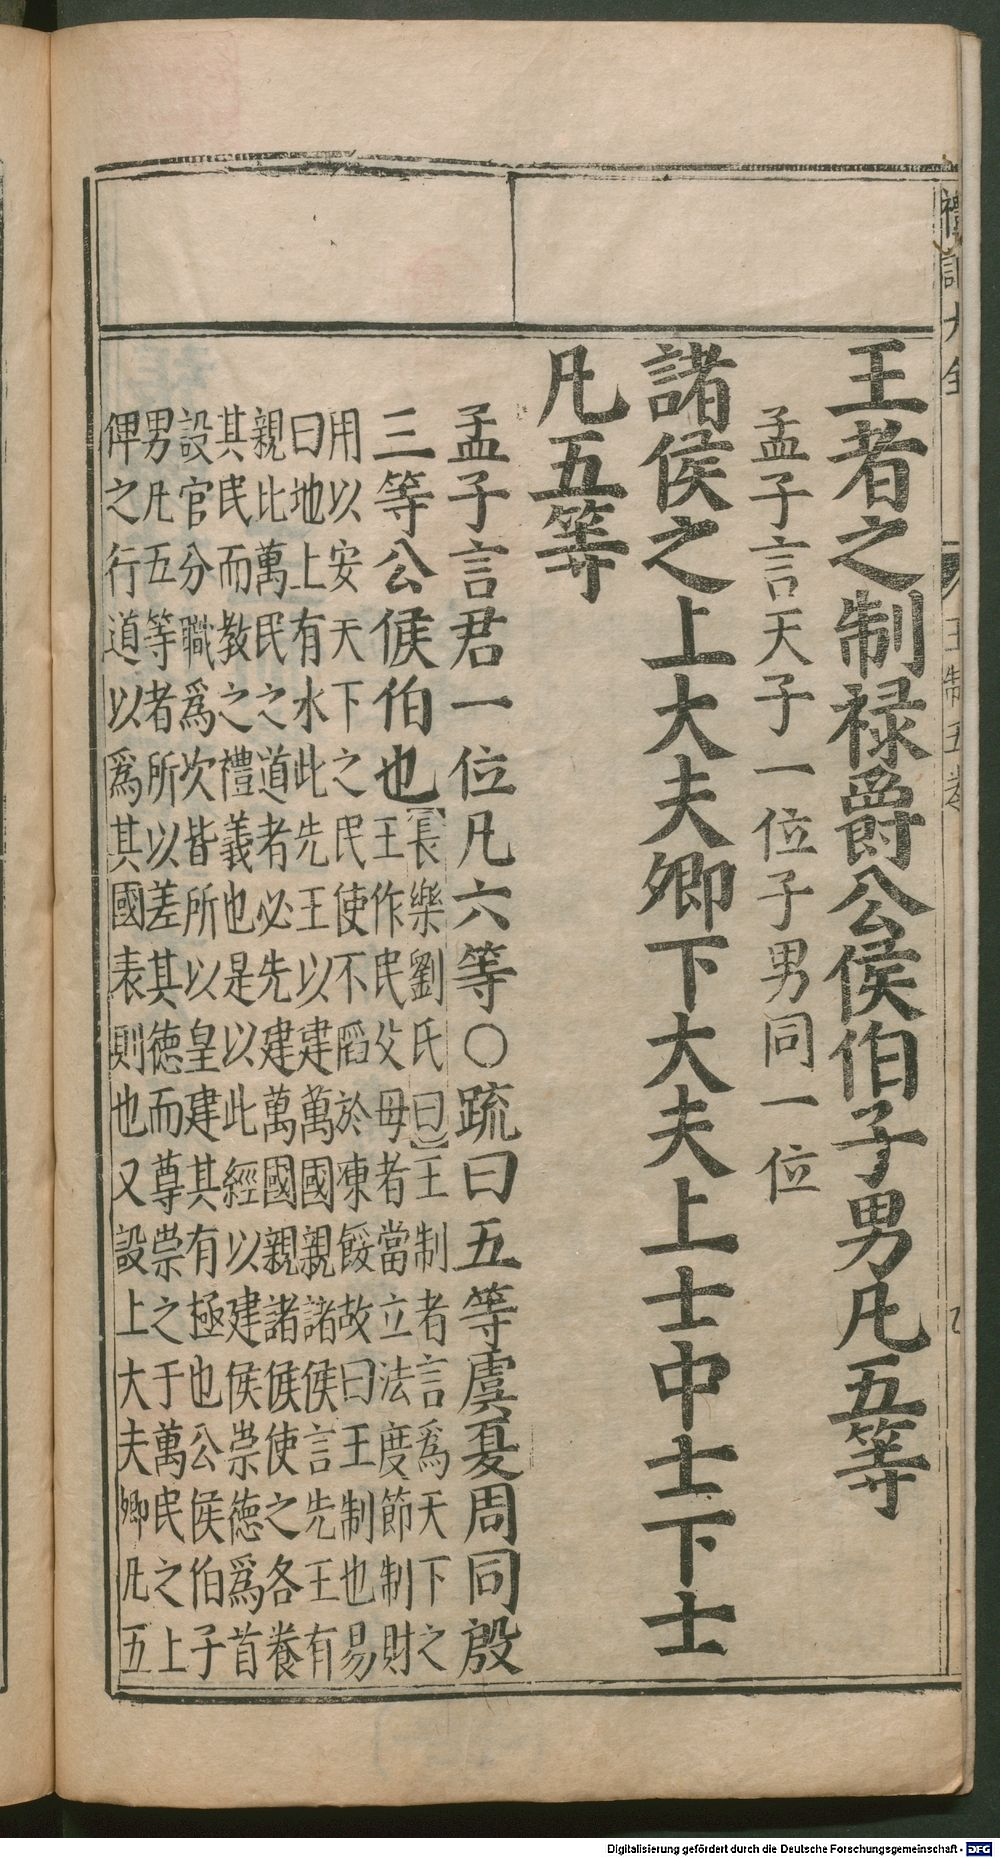 禮記大全 王制五卷
王者之制禄爵公侯伯子男凡五等
孟子言天子一位子男同一位
諸侯之上大夫卿下大夫上士中士下士
凡五等
孟子言君一位凡六等○疏曰五等虞夏周同殷
三等公侯伯也
【長樂劉氏曰】王制者言爲天下之
王作民父母者當立法度節制財
用以安天下之民使不蹈於凍餒故曰王制也易
曰地上有水此先王以建萬國親諸侯言先王有
親比萬民之道者必先建萬國親諸侯使之各養
其民而教之禮義也是以此經以建侯崇德爲首
設官分職爲次皆所以皇建其有極也公侯伯子
男凡五等者所以差其德而尊崇之于萬民之上
俾之行道以爲其國表則也又設上大夫卿凡五
Digitalisierung gefördert durch die Deutsche Forschungsgemeinschaft - DFG